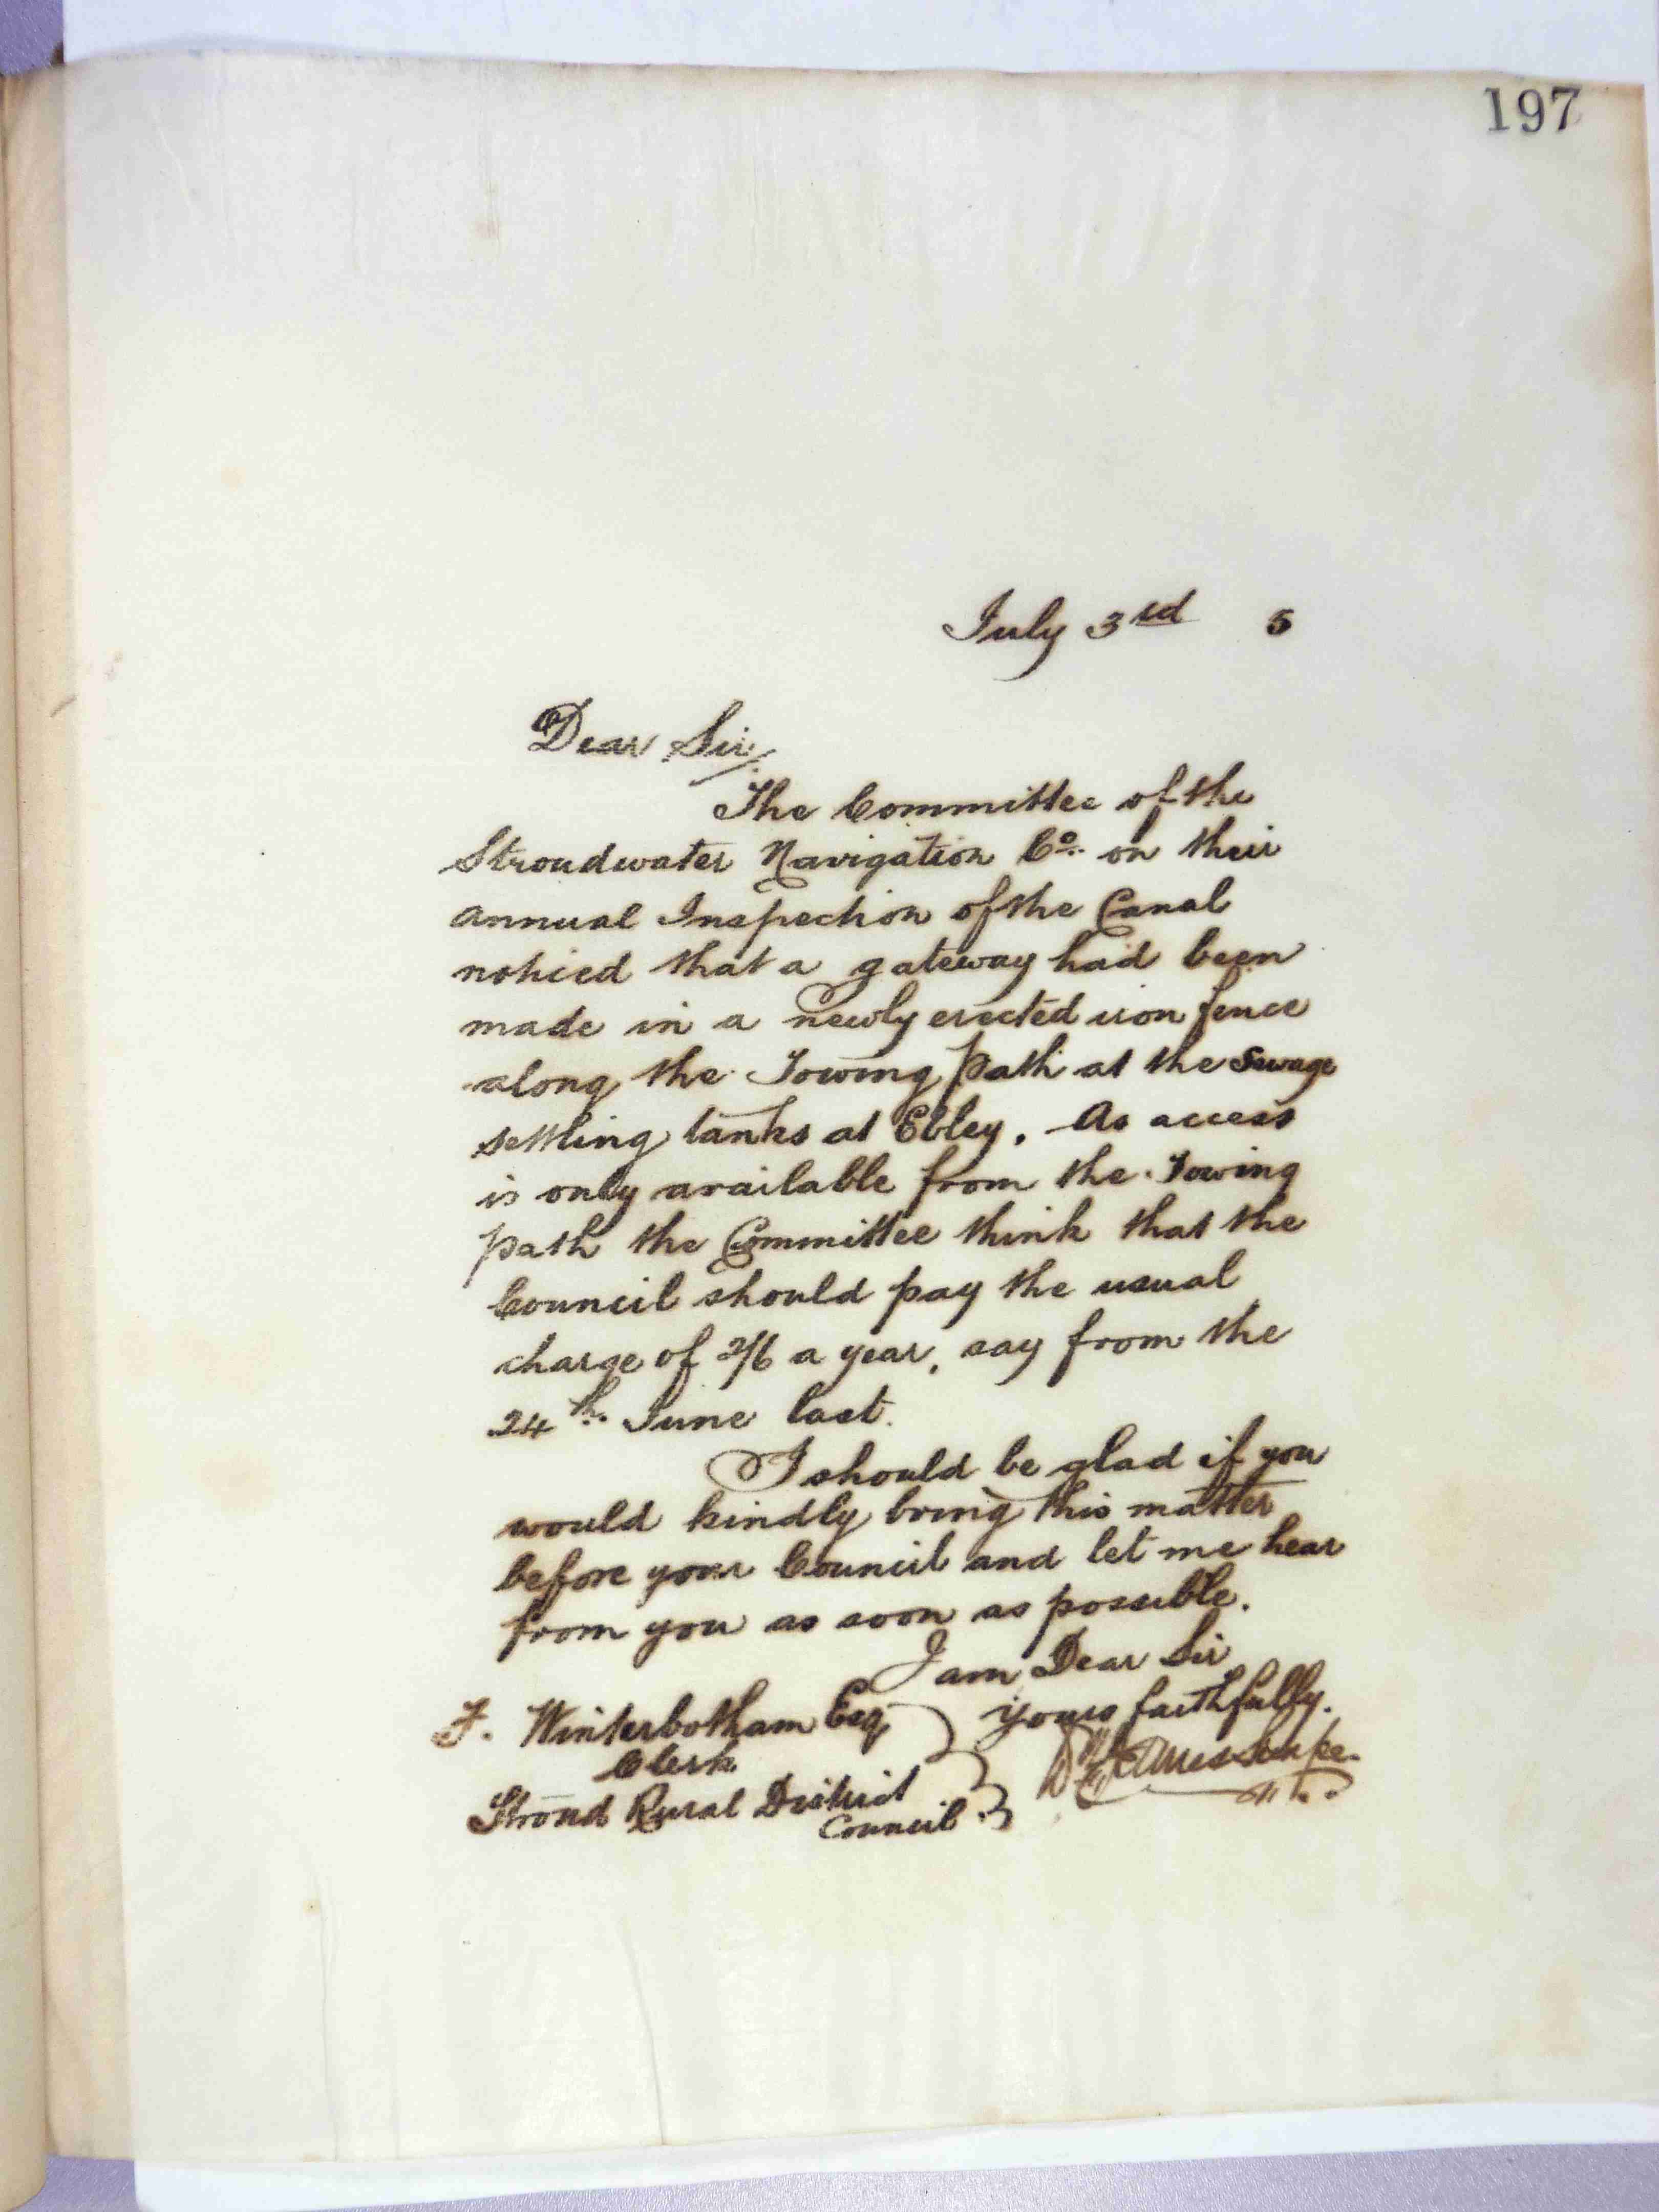 197
July 3rd 5
Dear Sir,
The Committee of the
Stroudwater Navigation Co. on their
annual Inspection of the Canal
noticed that a gateway had been
made in a newly erected iron fence
along the Towing Path at the Sewage
settling tanks at Ebley. As access
is only available from the Towing
path the Committee think that the
Council should pay the usual
charge of 2/6 a year, say from the
24th. June last.
I should be glad if you
would kindly bring this matter
before your Council and let me hear
from you as soon as possible.
I am Dear Sir
F. Winterbotham Esq yours faithfully.
Clerk
Stroud Rural District
Council